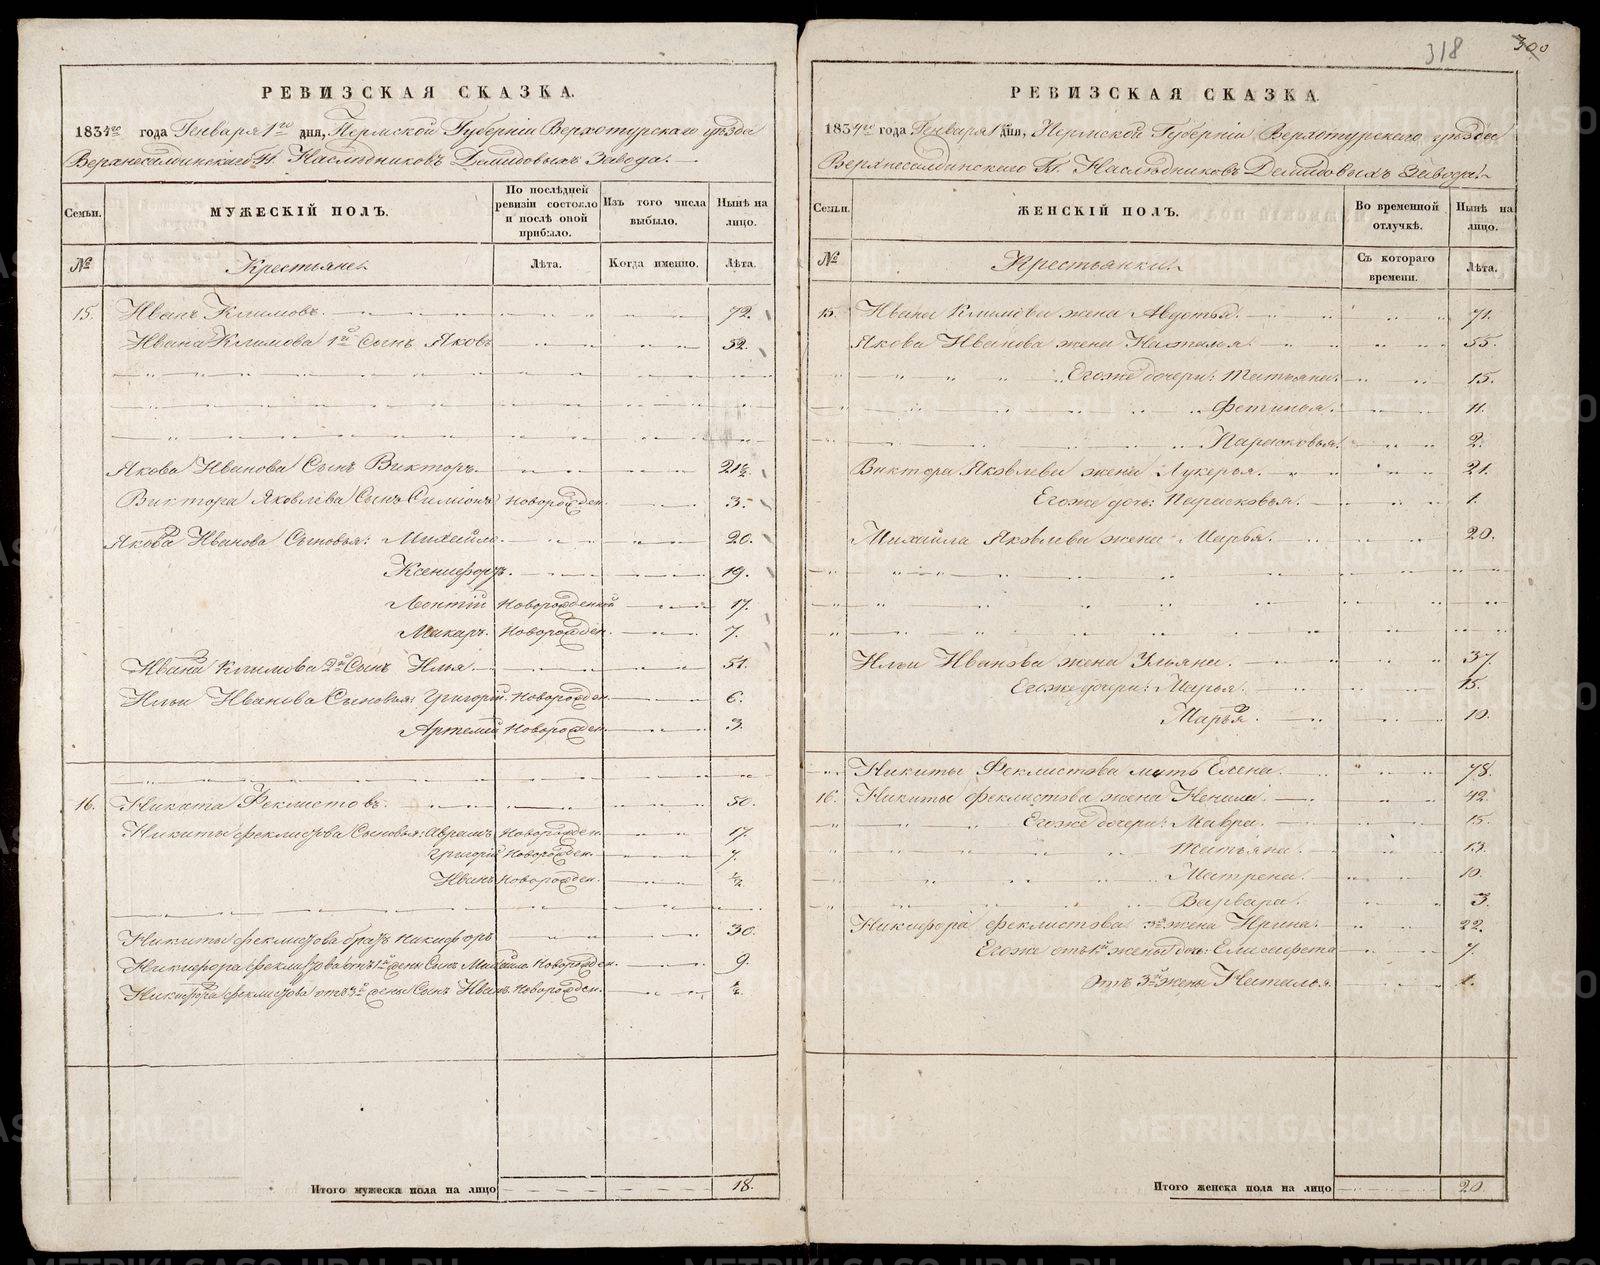 318 300
РЕВИЗСКАЯ СКАЗКА.
1834го года Генваря 1го дня, Пермской Губернии Верхотурскаго уѣзда
Верхнесалдинскаго Гг. Наслѣдниковъ Демидовыхъ Завода.
Семьи. МУЖЕСКІЙ ПОЛЪ. По послѣдней ревизіи состояло и послѣ оной прибыло. Изъ того числа выбыло. Нынѣ на лицо.
№ Крестьяне Лѣта. Когда именно. Лѣта.
15. Иванъ Климовъ. 72.
Ивана Климова 1й Сынъ Яковъ 52.
Якова Иванова Сынъ Викторъ. 21½
Виктора Яковлева Сынъ Симіонъ Новорожден. 3.
Якова Иванова Сыновья: Михайло. 20.
Ксенифоръ. 19.
Леонтій Новорожденной 17.
Макаръ. Новорожден. 7.
Ивана Климова 2й Сынъ Илья 51.
Ильи Иванова Сыновья: Григорій Новорожден. 6.
Артемій Новорожден. 3.
16. Никита Феклистовъ. 50.
Никиты Феклистова Сыновья: Аврамъ Новорожден. 17.
Григорій Новорожден. 7.
Иванъ Новорожден. ½
Никиты Феклистова братъ Никифоръ 30.
Никифора Феклистова отъ 1й жены Сынъ Михайло Новорожден. 9.
Никифора Феклистова отъ 3й жены Сынъ Иванъ Новорожден. ½
Итого мужеска пола на лицо 18.
РЕВИЗСКАЯ СКАЗКА.
1834го года Генваря 1 дня, Пермской Губерніи Верхотурскаго уѣзда
Верхнесалдинскаго Гг. Наслѣдниковъ Демидовыхъ Завода.
Семьи. ЖЕНСКІЙ ПОЛЪ. Во временной отлучкѣ. Нынѣ на лицо.
№ Крестьянки Съ котораго времени. Лѣта.
15. Ивана Климова жена Авдотья. 71.
Якова Иванова жена Наталья. 55.
Егоже дочери: Татьяна. 15.
Фетинья. 11.
Парасковья. 2.
Виктора Яковлева жена Лукерья. 21.
Егоже дочь: Парасковья. 1.
Михайла Яковлева жена Марья. 20.
Ильи Иванова жена Ульяна. 37.
Егоже дочери: Марья. 15.
Марья. 10.
Никиты Феклистова мать Елена. 78.
16. Никиты Феклистова жена Ненила. 42.
Егоже дочери: Мавра. 15.
Татьяна. 13.
Матрена. 10.
Варвара. 3.
Никифора Феклистова 3я жена Ирина. 22.
Егоже отъ 1й жены дочь: Елизавета 7.
Отъ 3й жены Наталья 1.
Итого женска пола на лицо 20.
METRIKI.GASO-URAL.RU